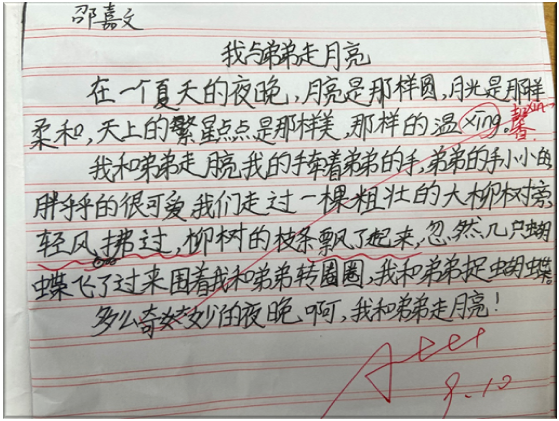 邵嘉文
我与弟弟走月亮
在一个夏天的夜晚,月亮是那样圆,月光是那样
柔和,天上的繁星点点是那样美,那样的温xing。馨xin
我和弟弟走月亮我的手牵着弟弟的手,弟弟的手小小的
胖乎乎的很可爱我们走过一棵粗壮的大柳树旁
轻风拂过,柳树的枝条飘了起来,忽然几只蝴
蝶飞了过来围着我和弟弟转圈圈,我和弟弟捉蝴蝶。
多么奇妙的夜晚啊,我和弟弟走月亮!
9.10